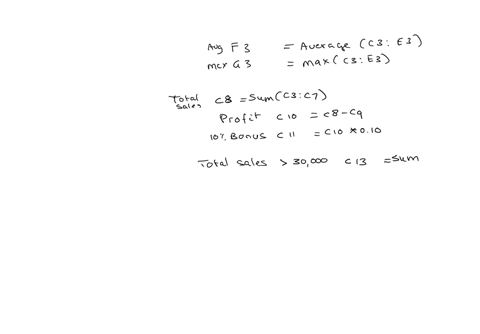 Avg F3 = Average (C3:E3)
max G3 = max (C3:E3)
Total sales C8 = Sum(C3:C7)
Profit C10 = C8-C9
10% Bonus C11 = C10*0.10
Total sales > 30,000 C13 = Sum